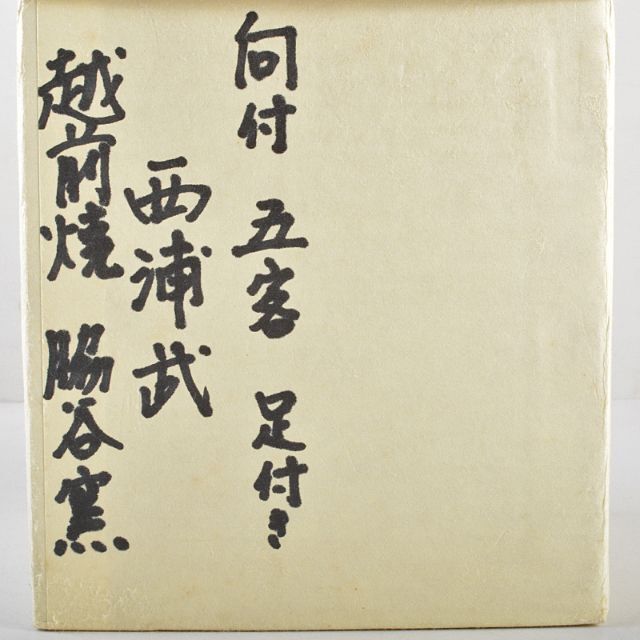 向付 五客 足付き
西浦武
越前焼 脇谷窯